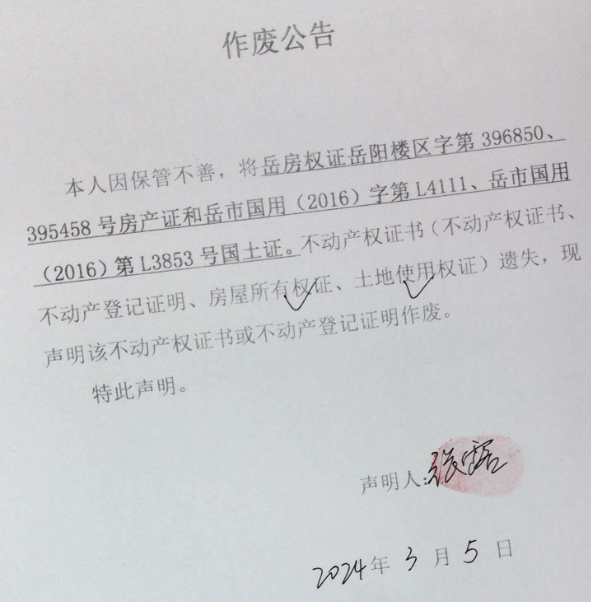 作废公告
本人因保管不善，将岳房权证岳阳楼区字第 396850、
395458 号房产证和岳市国用（2016）字第 L4111、岳市国用
（2016）第 L3853 号国土证。不动产权证书（不动产权证书、
不动产登记证明、房屋所有权证、土地使用权证）遗失，现
声明该不动产权证书或不动产登记证明作废。
特此声明。
声明人：张
2024年 3 月 5 日